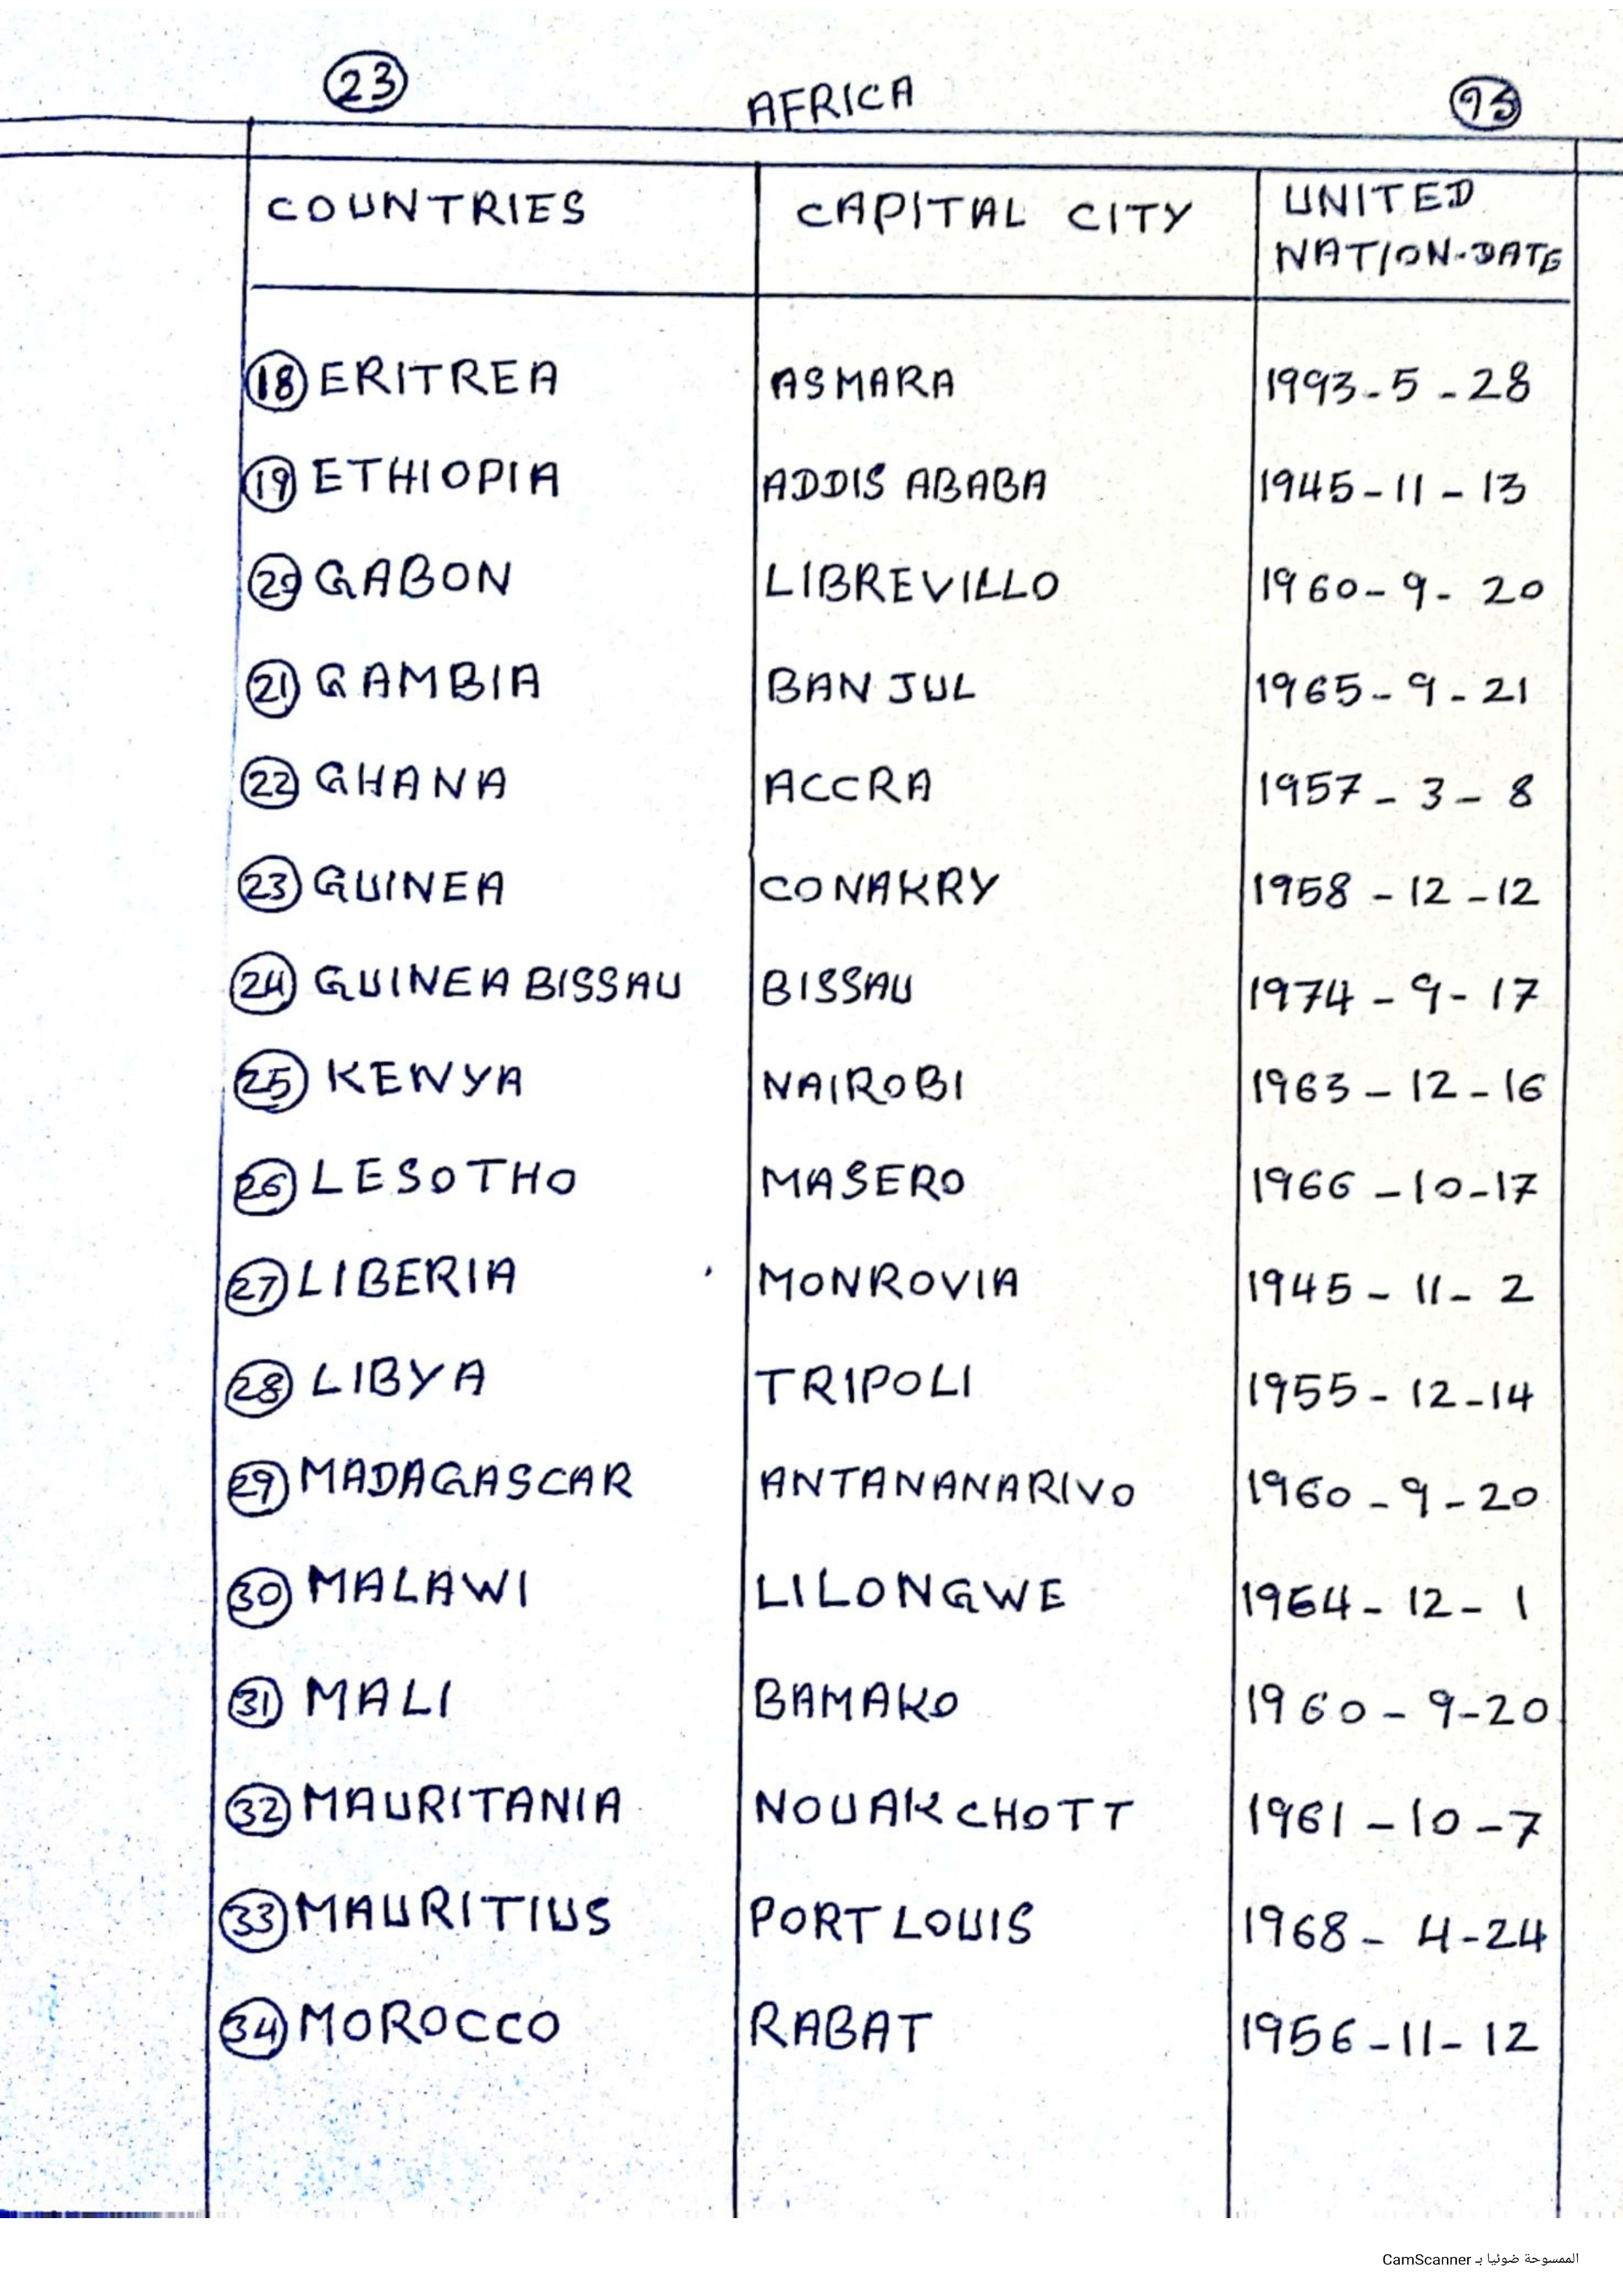 23 AFRICA
COUNTRIES CAPITAL CITY UNITED
NATION-DATE
18 ERITREA ASMARA 1993-5-28
19 ETHIOPIA ADDIS ABABA 1945-11-13
20 GABON LIBREVILLO 1960-9-20
21 GAMBIA BANJUL 1965-9-21
22 GHANA ACCRA 1957-3-8
23 GUINEA CONAKRY 1958-12-12
24 GUINEA BISSAU BISSAU 1974-9-17
25 KENYA NAIROBI 1963-12-16
26 LESOTHO MASERO 1966-10-17
27 LIBERIA MONROVIA 1945-11-2
28 LIBYA TRIPOLI 1955-12-14
29 MADAGASCAR ANTANANARIVO 1960-9-20
30 MALAWI LILONGWE 1964-12-1
31 MALI BAMAKO 1960-9-20
32 MAURITANIA NOUAKCHOTT 1961-10-7
33 MAURITIUS PORT LOUIS 1968-4-24
34 MOROCCO RABAT 1956-11-12
الممسوحة ضوئيا بـ CamScanner